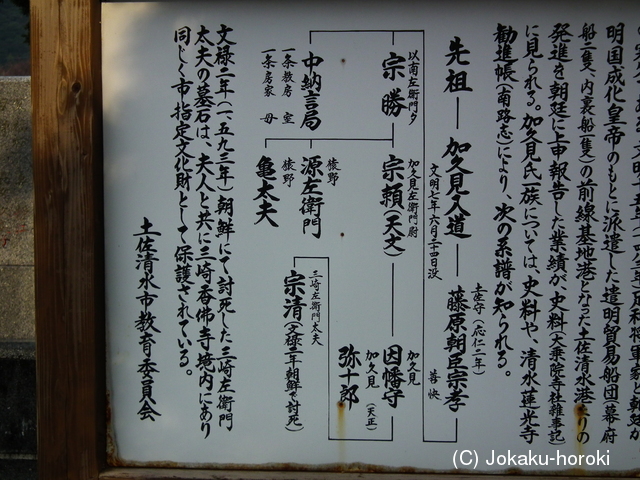 明国成化皇帝のもとに派遣した遣明貿易船団(幕府
船二隻、内裏船一隻)の前線基地港となった土佐清水港よりの
発進を朝廷に申報告した業績が、史料(大乗院寺社雑事記)
に見られる。加久見氏一族については、史料や、清水蓮光寺
勧進帳(南路志)により、次の系譜が知られる。
先祖
加久見入道
文明七年六月二十四日没
藤原朝臣宗孝
土佐守(応仁二年)
善快
以南左衛門夕
宗勝
加久見左衛門尉
宗頼(天文)
加久見
因幡守
加久見(天正)
弥十郎
中納言局
一条教房 室
一条房家 母
猿野
源左衛門
猿野
亀太夫
三崎左衛門太夫
宗清(文禄二年朝鮮で討死)
文禄二年(一、五九三年)朝鮮にて討死した三崎左衛門
太夫の墓石は、夫人と共に三崎香佛寺境内にあり
同じく市指定文化財として保護されている。
土佐清水市教育委員会
(C) Jokaku-horoki